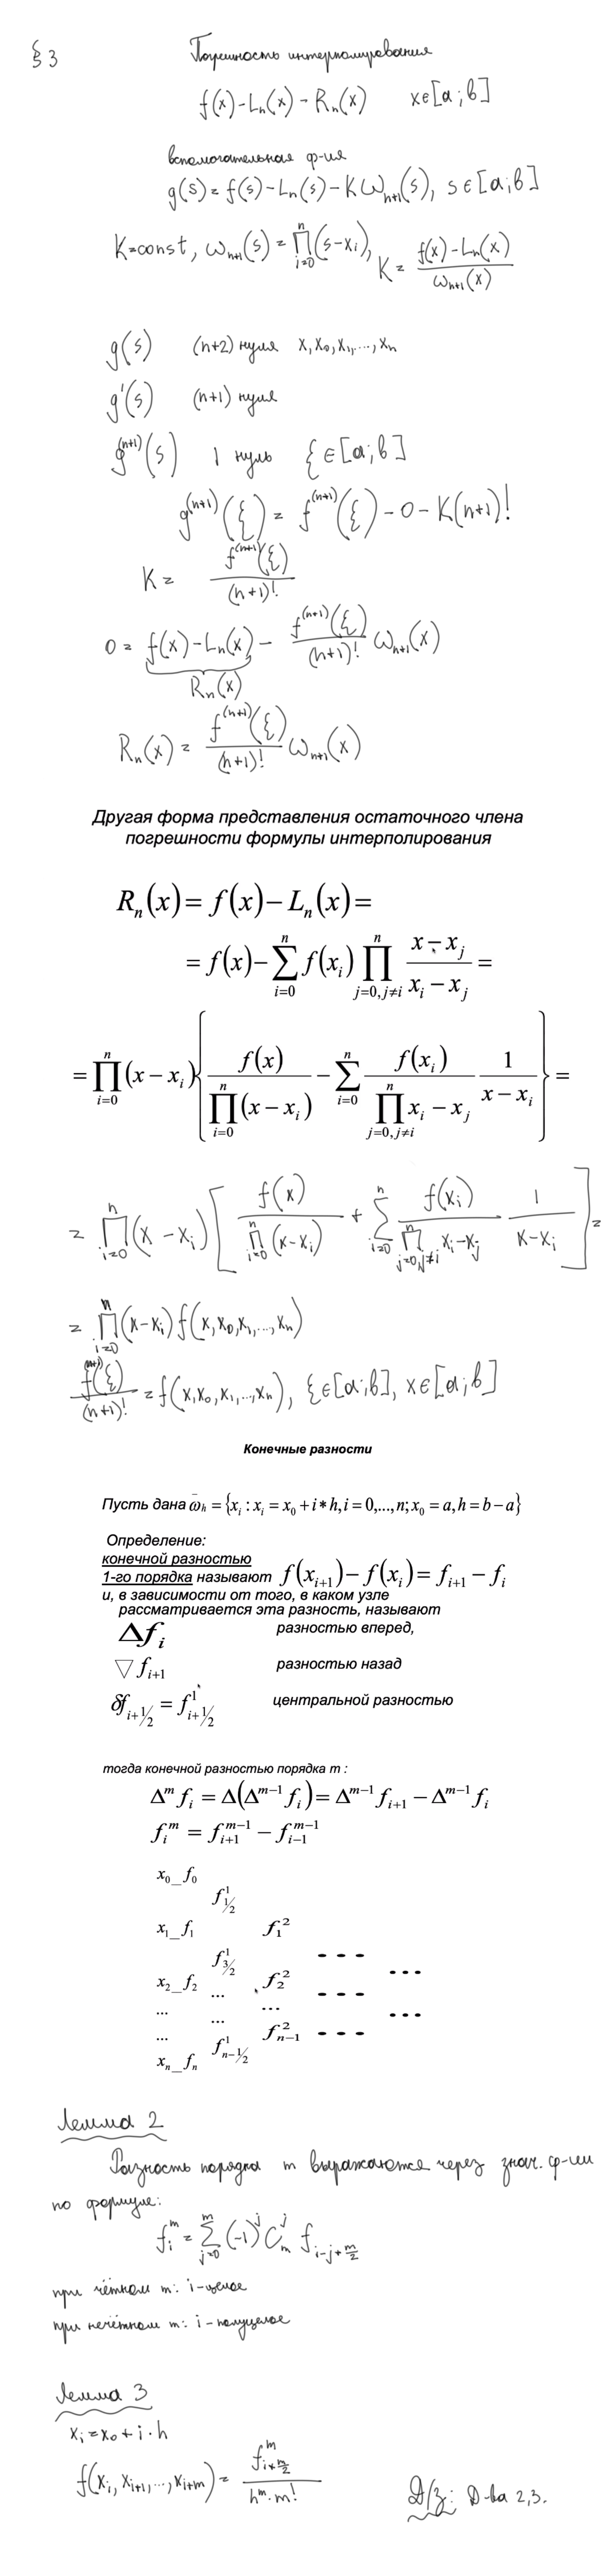 §3 Погрешность интерполирования
f(x)-Lₙ(x)-Rₙ(x) x∈[a;b]
вспомогательная ф-ия
g(s)=f(s)-Lₙ(s)-Kωₙ₊₁(s), s∈[a;b]
K=const, ωₙ₊₁(s)=∏_{i=0}^{n}(s-xᵢ), K = (f(x)-Lₙ(x))/(ωₙ₊₁(x))
g(s) (n+2) нуля x, x₀, x₁, ..., xₙ
g'(s) (n+1) нуля
g⁽ⁿ⁺¹⁾(s) 1 нуль ξ∈[a;b]
g⁽ⁿ⁺¹⁾(ξ) = f⁽ⁿ⁺¹⁾(ξ) - 0 - K(n+1)!
K = f⁽ⁿ⁺¹⁾(ξ)/(n+1)!
0 = f(x)-Lₙ(x) - f⁽ⁿ⁺¹⁾(ξ)/(n+1)! ωₙ₊₁(x)
Rₙ(x)
Rₙ(x) = f⁽ⁿ⁺¹⁾(ξ)/(n+1)! ωₙ₊₁(x)
Другая форма представления остаточного члена
погрешности формулы интерполирования
Rₙ(x) = f(x) - Lₙ(x) =
= f(x) - ∑_{i=0}^{n} f(xᵢ) ∏_{j=0,j≠i}^{n} (x - xⱼ)/(xᵢ - xⱼ) =
= ∏_{i=0}^{n}(x - xᵢ){ f(x)/∏_{i=0}^{n}(x - xᵢ) - ∑_{i=0}^{n} f(xᵢ)/∏_{j=0,j≠i}^{n} xᵢ - xⱼ 1/(x - xᵢ) } =
= ∏_{i=0}^{n}(x - xᵢ)[ f(x)/∏_{i=0}^{n}(x-xᵢ) + ∑_{i=0}^{n} f(xᵢ)/∏_{j=0,j≠i}^{n} xᵢ-xⱼ 1/(x-xᵢ) ] =
= ∏_{i=0}^{n}(x-xᵢ) f(x, x₀, x₁, ..., xₙ)
f⁽ⁿ⁺¹⁾(ξ)/(n+1)! = f(x, x₀, x₁, ..., xₙ), ξ∈[a;b], x∈[a;b]
Конечные разности
Пусть дана ω̄ₕ = {xᵢ : xᵢ = x₀ + i * h, i = 0,...,n; x₀ = a, h = b - a}
Определение:
конечной разностью
1-го порядка называют f(xᵢ₊₁) - f(xᵢ) = fᵢ₊₁ - fᵢ
и, в зависимости от того, в каком узле
рассматривается эта разность, называют
Δfᵢ разностью вперед,
▽fᵢ₊₁ разностью назад
δf_{i+1/2} = f¹_{i+1/2} центральной разностью
тогда конечной разностью порядка m :
Δᵐfᵢ = Δ(Δᵐ⁻¹fᵢ) = Δᵐ⁻¹fᵢ₊₁ - Δᵐ⁻¹fᵢ
fᵢᵐ = f_{i+1}^{m-1} - f_{i-1}^{m-1}
x₀_f₀
f¹_{1/2}
x₁_f₁ f₁²
f¹_{3/2} - - -
x₂_f₂ f₂² ...
... - - -
... ... ...
... f²_{n-1} - - -
f¹_{n-1/2}
xₙ_fₙ
Лемма 2
Разность порядка m выражаются через знач. ф-ии
по формуле:
fᵢᵐ = ∑_{j=0}^{m} (-1)ʲ Cₘʲ f_{i-j+m/2}
при чётном m: i-целое
при нечётном m: i-полуцелое
Лемма 3
xᵢ = x₀ + i·h
f(xᵢ, xᵢ₊₁, ..., xᵢ₊ₘ) = f^m_{i+m/2}/(hᵐ·m!)
Д/з: Д-ва 2,3.